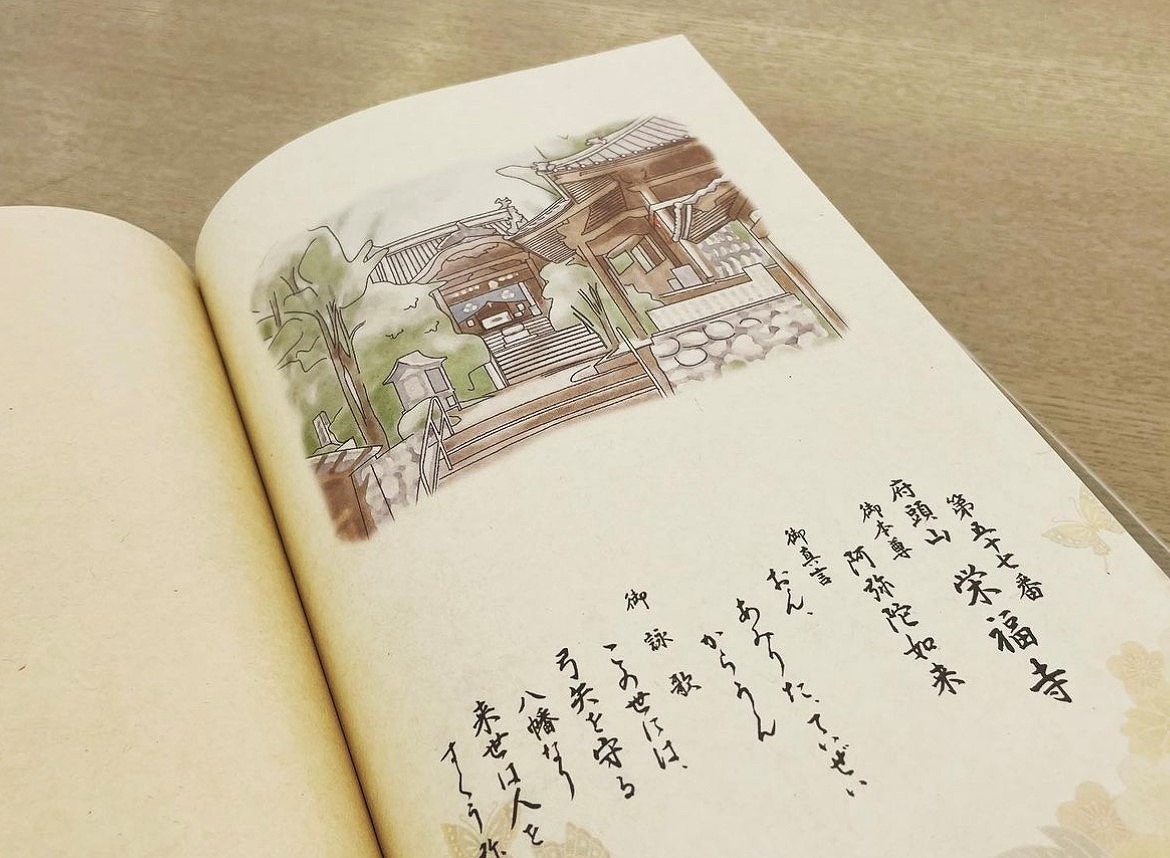 第五十七番
府頭山 栄福寺
御本尊 阿弥陀如来
御真言
おん、
あみりた、ていぜい
からうん
御詠歌
この世には、
弓矢を守る
八幡なり
来世は人を
すくう弥